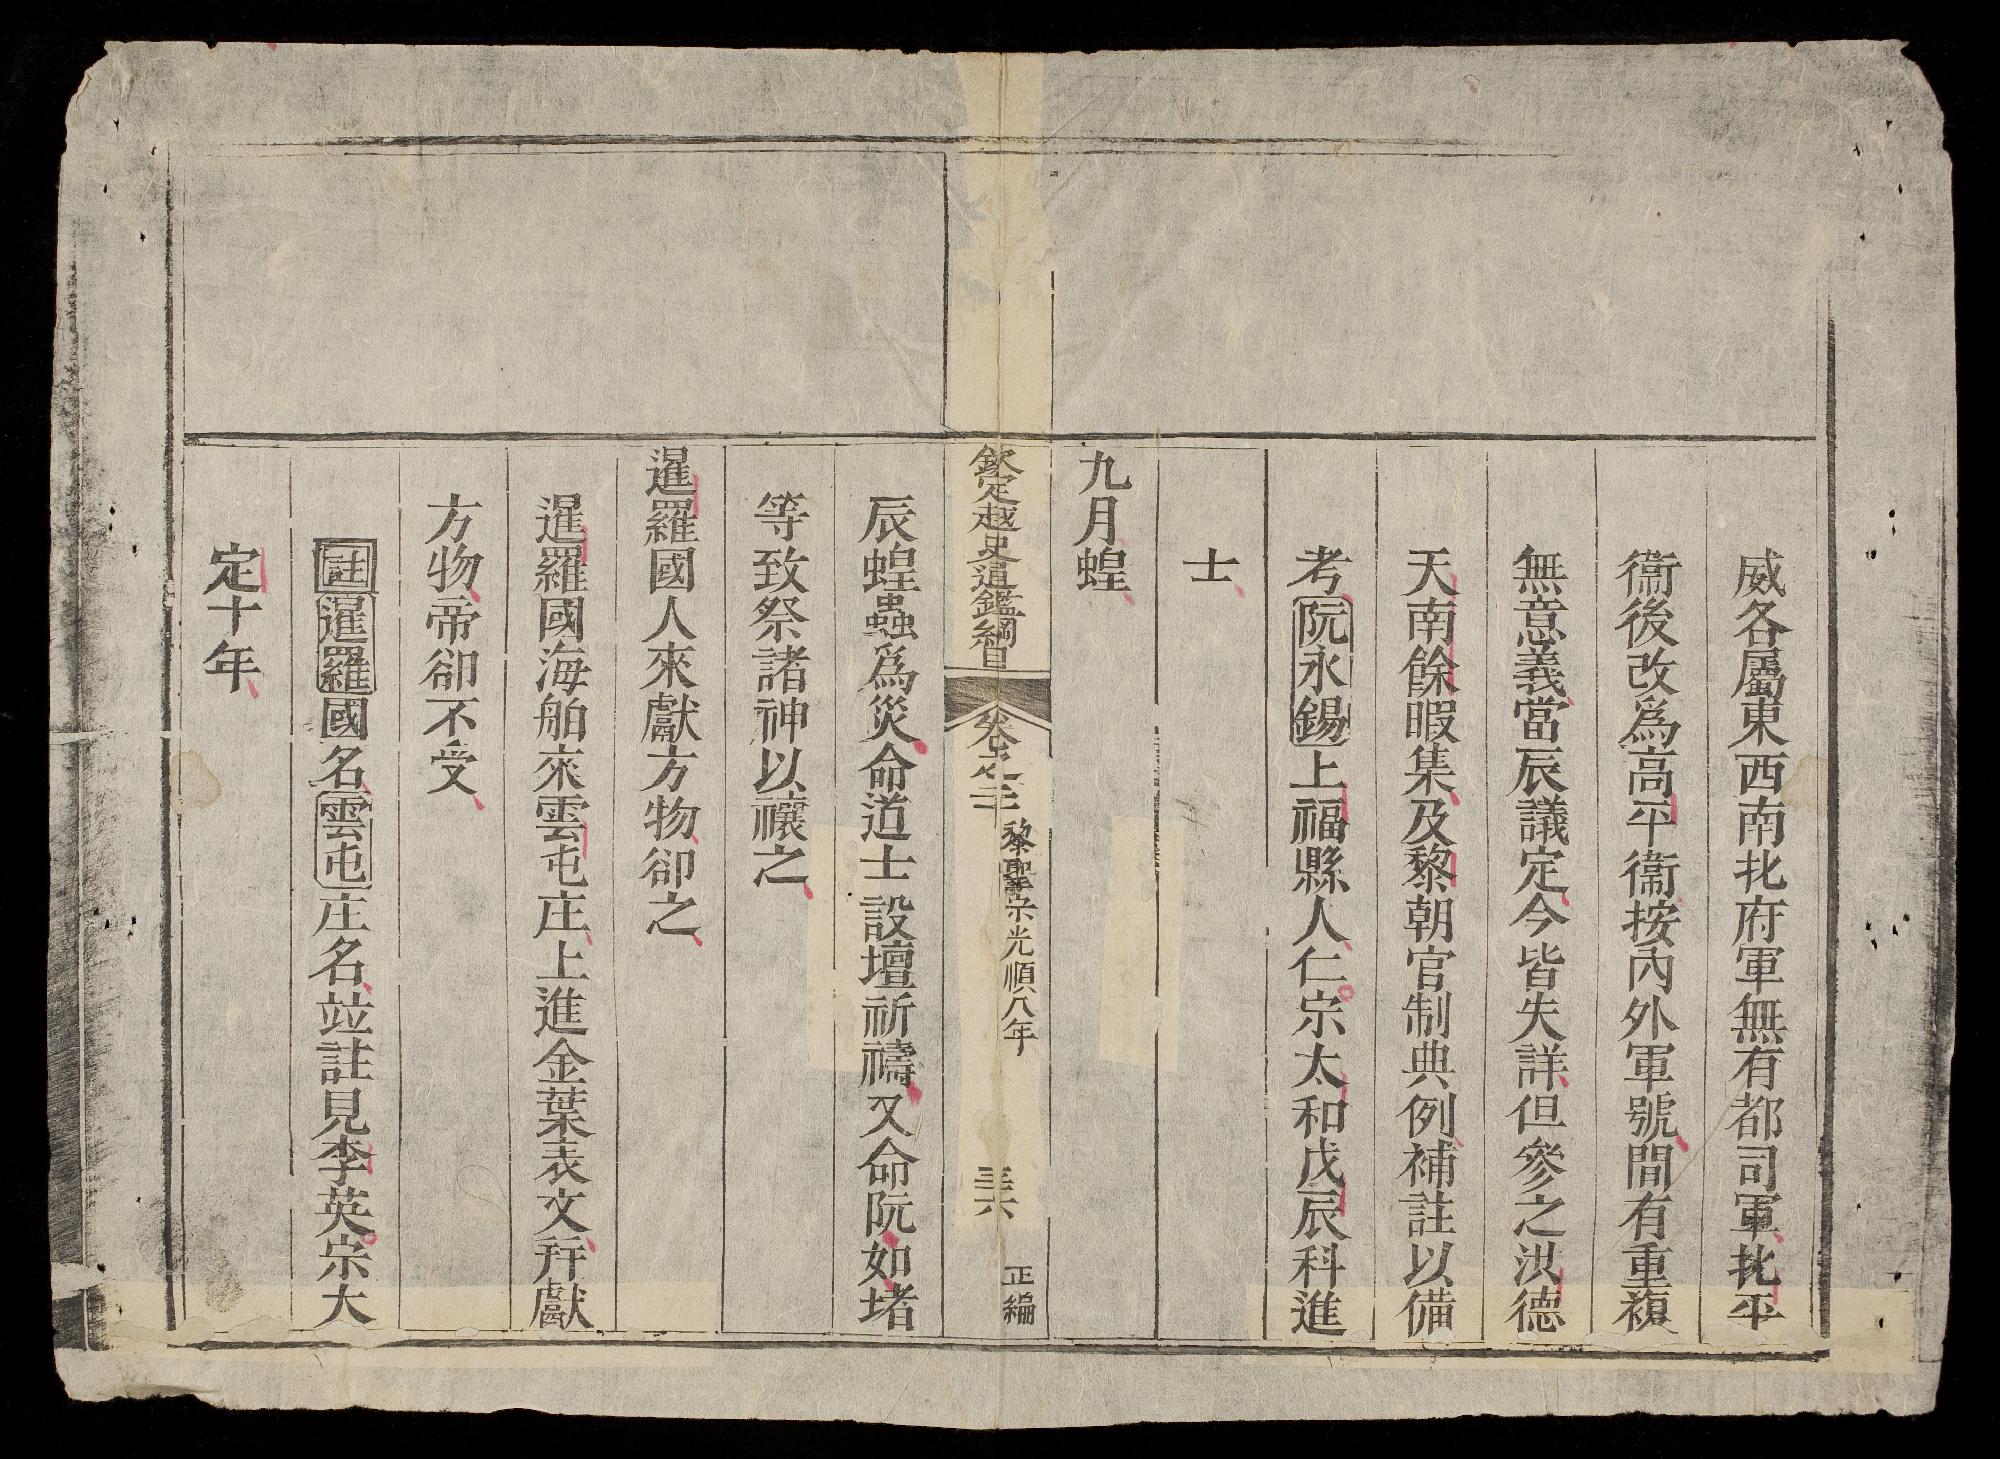 威各屬東西南北府軍無有都司軍北平
衞後改爲高平衞按內外軍號間有重複
無意義當辰議定今皆失詳但參之洪德
天南餘暇集及黎朝官制典例補註以備
考阮永錫上福縣人仁宗太和戊辰科進
士
九月蝗
欽定越史通鑑綱目 卷之二十 黎聖宗光順八年 三十六 正編
辰蝗蟲爲災命道士設壇祈禱又命阮如堵
等致祭諸神以禳之
暹羅國人來獻方物卻之
暹羅國海舶來雲屯庄上進金葉表文幷獻
方物帝卻不受
註暹羅國名雲屯庄名竝註見李英宗大
定十年